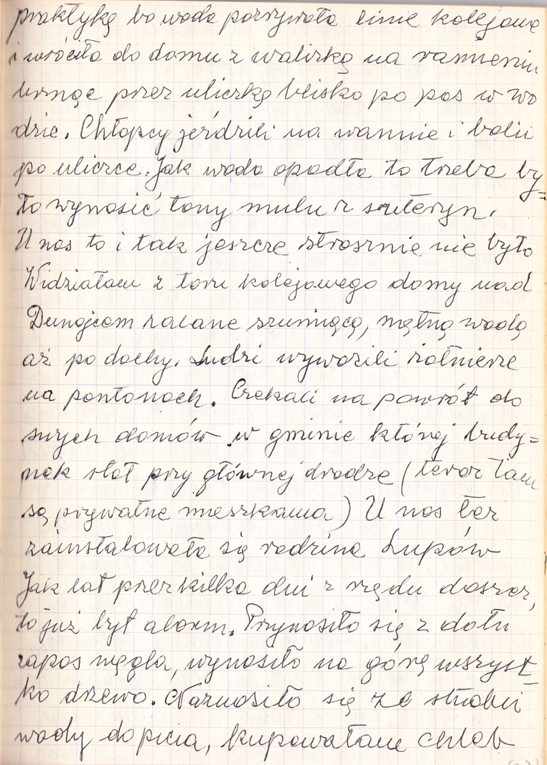 praktykę bo woda pozrywała linie kolejową
i wróciła do domu z walizką na ramieniu
brnąc przez uliczkę blisko po pas w wo
dzie. Chłopcy jeździli na wannie i balii
po uliczce. Jak woda opadła to trzeba by=
ło wynosić tony mułu z suteryn.
U nas to i tak jeszcze strasznie nie było
Widziałam z toru kolejowego domy nad
Dunajcem zalane szumiącą, mętną wodą
aż po dachy. Ludzi wywozili żołnierze
na pontonach. Czekali na powrót do
swych domów w gminie której budy=
nek stał przy głównej drodze (teraz tam
są prywatne mieszkania) U nas też
zainstalowała się rodzina Łupów
Jak lał przez kilka dni z rzędu deszcz,
to już był alarm. Przynosiło się z dołu
zapas węgla, wynosiło na górę wszyst=
ko drzewo. Nanosiło się ze studni
wody do picia, kupowałam chleb